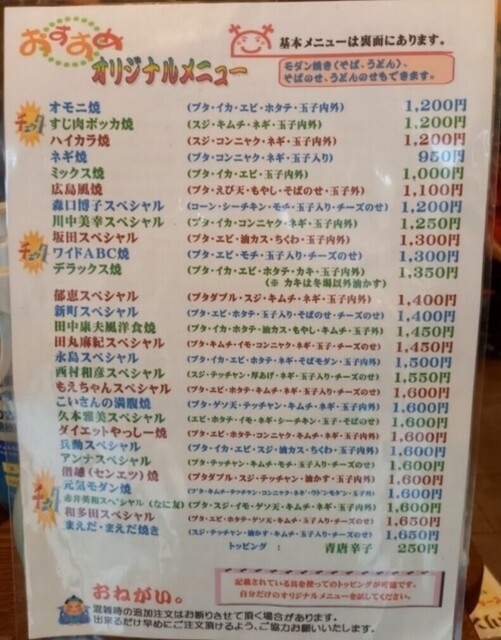 おすすめ
オリジナルメニュー
基本メニューは裏面にあります。
モダン焼き(そば、うどん)、
そばのせ、うどんのせもできます。
チェック
オモニ焼 (ブタ・イカ・エビ・ホタテ・玉子内外) 1,200円
すじ肉ポッカ焼 (スジ・キムチ・ネギ・玉子内外) 1,200円
ハイカラ焼 (スジ・コンニャク・ネギ・玉子内外) 1,200円
ネギ焼 (ブタ・コンニャク・ネギ・玉子入り) 950円
ミックス焼 (ブタ・イカ・エビ) 1,000円
広島風焼 (ブタ・えび天・もやし・そばのせ・玉子外) 1,100円
森口博子スペシャル (コーン・シーチキン・モチ・玉子入り・チーズのせ) 1,200円
川中美幸スペシャル (ブタ・イカ・コンニャク・ネギ・玉子内外) 1,250円
坂田スペシャル (ブタ・エビ・油カス・ちくわ・玉子内外) 1,300円
チェック
ワイドABC焼 (ブタ・エビ・モチ・玉子入り・チーズのせ) 1,300円
デラックス焼 (ブタ・イカ・エビ・ホタテ・カキ・玉子内外) 1,350円
(※ カキは冬場以外油かす)
郁恵スペシャル (ブタダブル・スジ・キムチ・ネギ・玉子内外) 1,400円
新町スペシャル (ブタ・エビ・ホタテ・玉子入り・そばのせ・チーズのせ) 1,400円
田中康夫風洋食焼 (ブタ・イカ・ホタテ・油カス・もやし・キムチ・ネギ外) 1,450円
田丸麻紀スペシャル (ブタ・キムチ・イモ・ネギ・玉子入り・チーズのせ) 1,450円
永島スペシャル (ブタ・イカ・エビ・ホタテ・ネギ・そばモダン・玉子外) 1,500円
西村和彦スペシャル (スジ・テッチャン・厚あげ・ネギ・玉子入り・チーズのせ) 1,550円
もえちゃんスペシャル (ブタ・エビ・ホタテ・キムチ・ネギ・玉子入り・チーズのせ) 1,600円
こいさんの満腹焼 (ブタ・ゲソ天・テッチャン・キムチ・ネギ・玉子内外) 1,600円
久本雅美スペシャル (エビ・ホタテ・イモ・ネギ・シーチキン・玉子・そばのせ) 1,600円
ダイエットやっしー焼 (ブタ・エビ・ホタテ・コンニャク・キムチ・ネギ・玉子内外) 1,600円
兵動スペシャル (ブタ・イカ・エビ・スジ・油カス・ちくわ・玉子内外) 1,600円
アンナスペシャル (ブタ・テッチャン・キムチ・モチ・玉子内・チーズのせ) 1,600円
(センエツ)焼 (ブタダブル・スジ・テッチャン・油かす・玉子内外) 1,600円
チェック
元気モダン焼 (ブタ・キムチ・テッチャン・コンニャク・ネギ・ウドンモダン・玉子外) 1,600円
赤井英和スペシャル(なに友) (ブタ・スジ・イモ・ゲソ天・キムチ・ネギ・玉子内外) 1,600円
和多田スペシャル (ブタ・エビ・ホタテ・ゲソ天・キムチ・玉子入り・チーズのせ) 1,650円
まえだ・まえだ焼き (スジ・テッチャン・油かす・キムチ・玉子入り・チーズのせ) 1,650円
トッピング : 青唐辛子 250円
おねがい。
混雑時の追加注文はお断りさせて頂く場合があります。
出来るだけ早めにご注文頂けるよう、ご協力お願いいたします。
記載されている具を使ってのトッピングが可能です。
自分だけのオリジナルメニューを試してください。